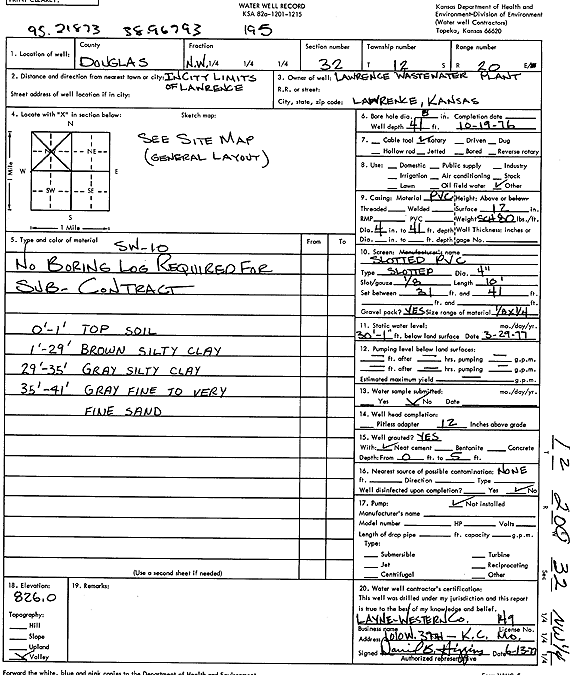 WATER WELL RECORD
KSA 82a-1201-1215
Kansas Department of Health and
Environment-Division of Environment
(Water well Contractors)
Topeka, Kansas 66620
95.21873 38.96793 195
1. Location of well: County DOUGLAS Fraction N.W. 1/4 1/4 1/4 Section number 32 Township number T 12 S Range number R 20 E/W
2. Distance and direction from nearest town or city: IN CITY LIMITS OF LAWRENCE
Street address of well location if in city:
3. Owner of well: LAWRENCE WASTEWATER PLANT
R.R. or street:
City, state, zip code: LAWRENCE, KANSAS
4. Locate with "X" in section below:
Sketch map:
N
NW NE
W E
SW SE
S
1 Mile
1 Mile
SEE SITE MAP
(GENERAL LAYOUT)
5. Type and color of material From To
SW-10
NO BORING LOG REQUIRED FOR
SUB-CONTRACT
0'-1' TOP SOIL
1'-29' BROWN SILTY CLAY
29'-35' GRAY SILTY CLAY
35'-41' GRAY FINE TO VERY
FINE SAND
(Use a second sheet if needed)
6. Bore hole dia. 8 in. Completion date
Well depth 41 ft. 10-19-76
7. Cable tool Rotary Driven Dug
Hollow rod Jetted Bored Reverse rotary
8. Use: Domestic Public supply Industry
Irrigation Air conditioning Stock
Lawn Oil field water Other
9. Casing: Material PVC Height: Above or below
Threaded Welded Surface 12 in.
RMP PVC Weight SCH 80 lbs./ft.
Dia. 4 in. to 41 ft. depth Wall Thickness: inches or
Dia. in. to ft. depth gage No.
10. Screen: Manufacturer's name
SLOTTED PVC
Type SLOTTED Dia. 4"
Slot/gauze 1/8 Length 10'
Set between 31 ft. and 41 ft.
ft. and ft.
Gravel pack? YES Size range of material 1/8 X 1/4
11. Static water level: mo./day/yr.
30'-1" ft. below land surface Date 3-29-77
12. Pumping level below land surfaces:
ft. after hrs. pumping g.p.m.
ft. after hrs. pumping g.p.m.
Estimated maximum yield g.p.m.
13. Water sample submitted: mo./day/yr.
Yes No Date
14. Well head completion:
Pitless adapter 12 Inches above grade
15. Well grouted? YES
With: Neat cement Bentonite Concrete
Depth: From 0 ft. to 5 ft.
16. Nearest source of possible contamination: NONE
ft. Direction Type
Well disinfected upon completion? Yes No
17. Pump: Not installed
Manufacturer's name
Model number HP Volts
Length of drop pipe ft. capacity g.p.m.
Type:
Submersible Turbine
Jet Reciprocating
Centrifugal Other
18. Elevation:
826.0
Topography:
Hill
Slope
Upland
Valley
19. Remarks:
20. Water well contractor's certification:
This well was drilled under my jurisdiction and this report
is true to the best of my knowledge and belief.
LAYNE-WESTERN CO. 149
Business name License No.
Address 1010 W. 39TH - K.C. Mo.
Signed Date 6-13-77
Authorized representative
T 12
R 20E
Sec 32
1/4 1/4 1/4 NW 1/4
Forward the white, blue and pink copies to the Department of Health and Environment